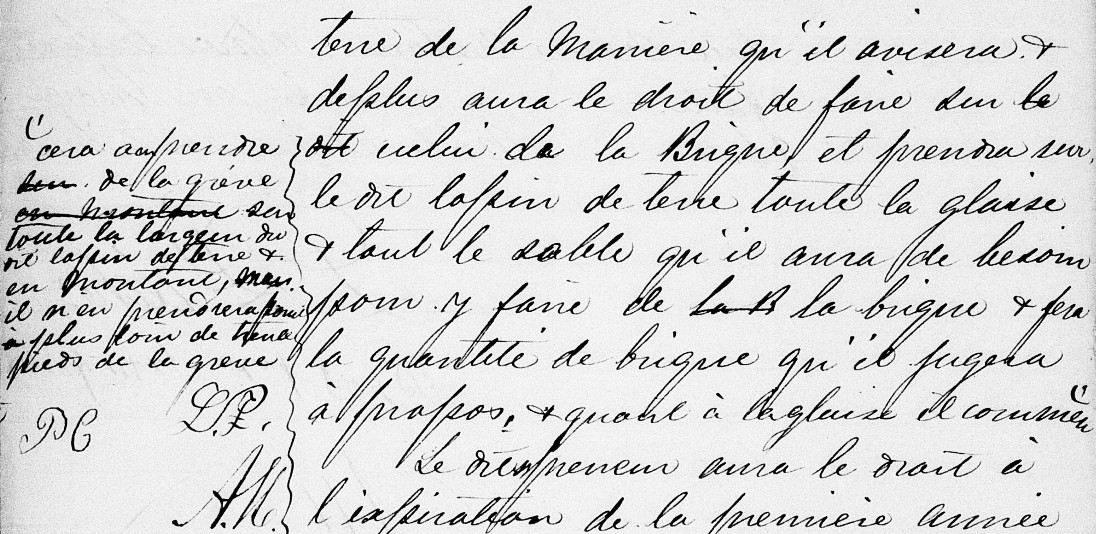 terre de la Manière qu'il avisera &
deplus aura le droit de faire sur le
dit celui de la Brique, et prendra sur
le dit lopin de terre toute la glaise
& tout le sable qu'il aura de besoin
pour y faire de la B la brique & fera
la quantité de brique qu'il jugera
à propos, & quant à la glaise il commen
Le dit preneur aura le droit à
l'expiration de la première année
cera a en prendre
sur de la grève
en montant sur
toute la largeur du
dit lopin de terre &
en montant, mais
il n'en prendrera point
à plus loin de trente
pieds de la grève
PC
D.P.
A.N.